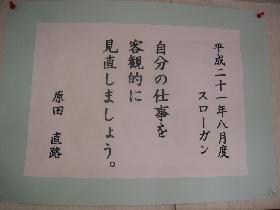 平成二十一年八月度
スローガン
自分の仕事を
客観的に
見直しましょう。
原田 直路